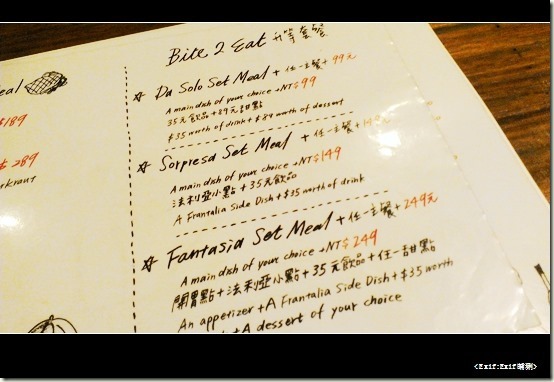 Bite 2 Eat 升等套餐
eal
$189
$289
erkraut
☆ Da Solo Set Meal + 任一主餐 + 99元
A main dish of your choice +NT$99
35元飲品+89元甜點
$35 worth of drink + $89 worth of dessert
☆ Sorpresa Set Meal + 任一主餐+149元
A main dish of your choice +NT$149
法利亞小點+35元飲品
A Frantalia Side Dish+$35 worth of drink
☆ Fantasia Set Meal + 任一主餐+249元
A main dish of your choice +NT$249
開胃點+法利亞小點+35元飲品+任一甜點
An appetizer +A Frantalia Side Dish+$35 worth
+A dessert of your choice
<Exif:Exif晴測>